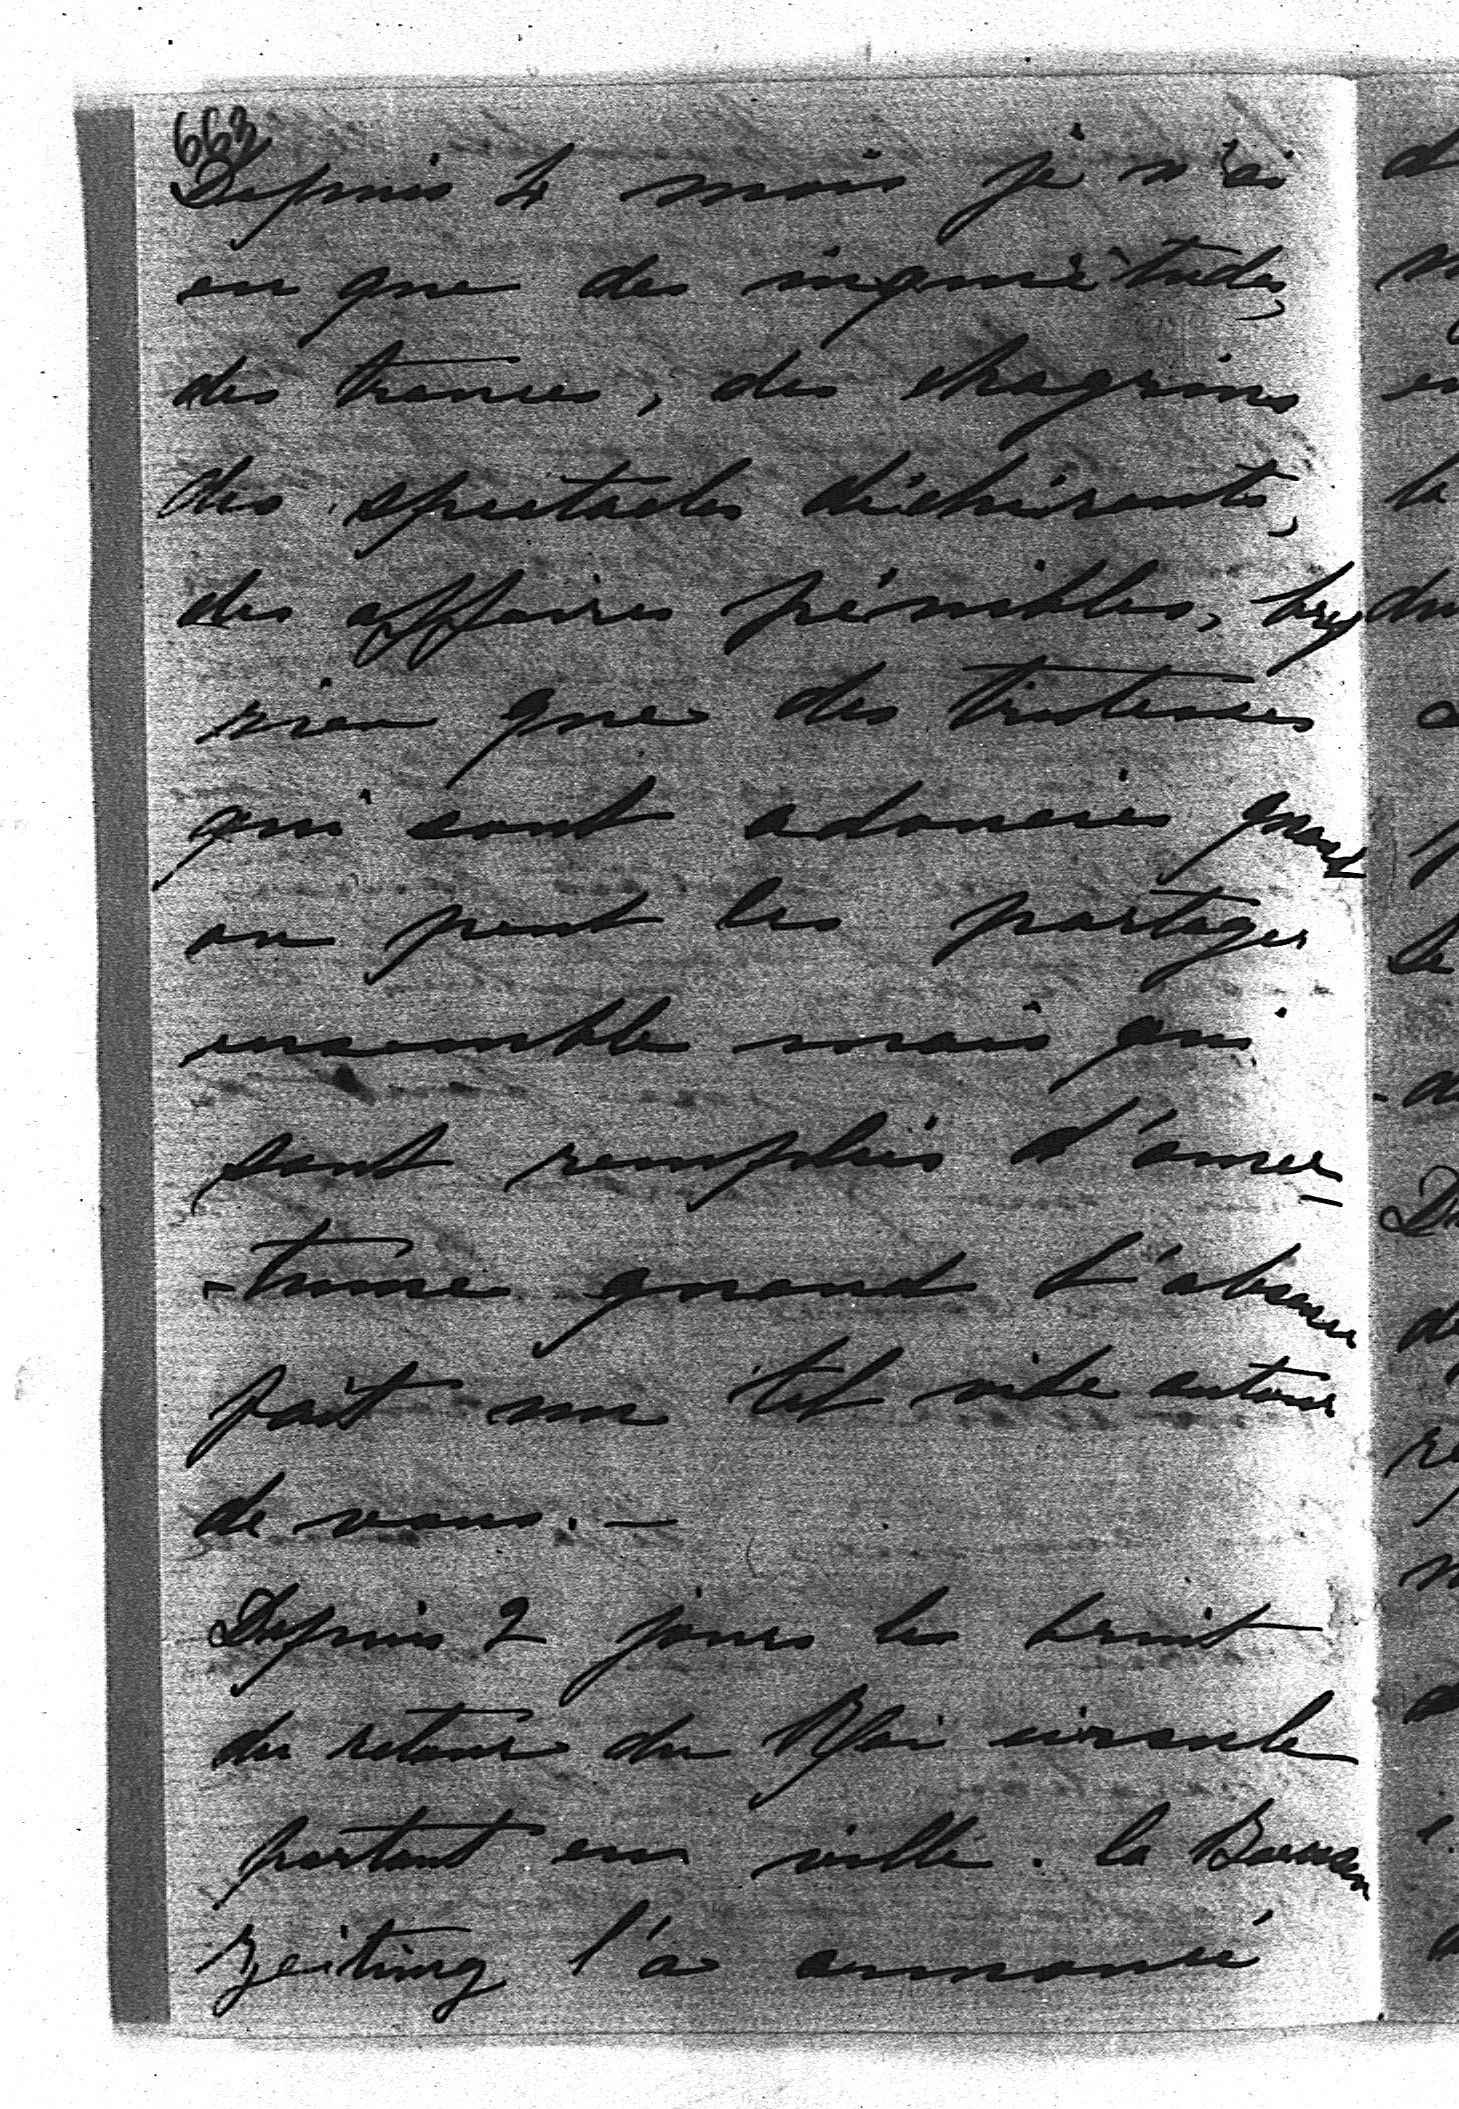 663
Depuis 4 mois je n'ai
eu que des inquiétudes,
des transes, des chagrins
des spectacles déchirants,
des affaires pénibles, bref
rien que des tristesses
qui sont adoucies quand
on peut les partager
ensemble mais qui
sont remplies d'amer
-tume quand l'absence
fait un tel vide autour
de vous. —
Depuis 2 jours le bruit
du retour du Roi circule
partout en ville. la Boersen
Zeitung l'a annoncé